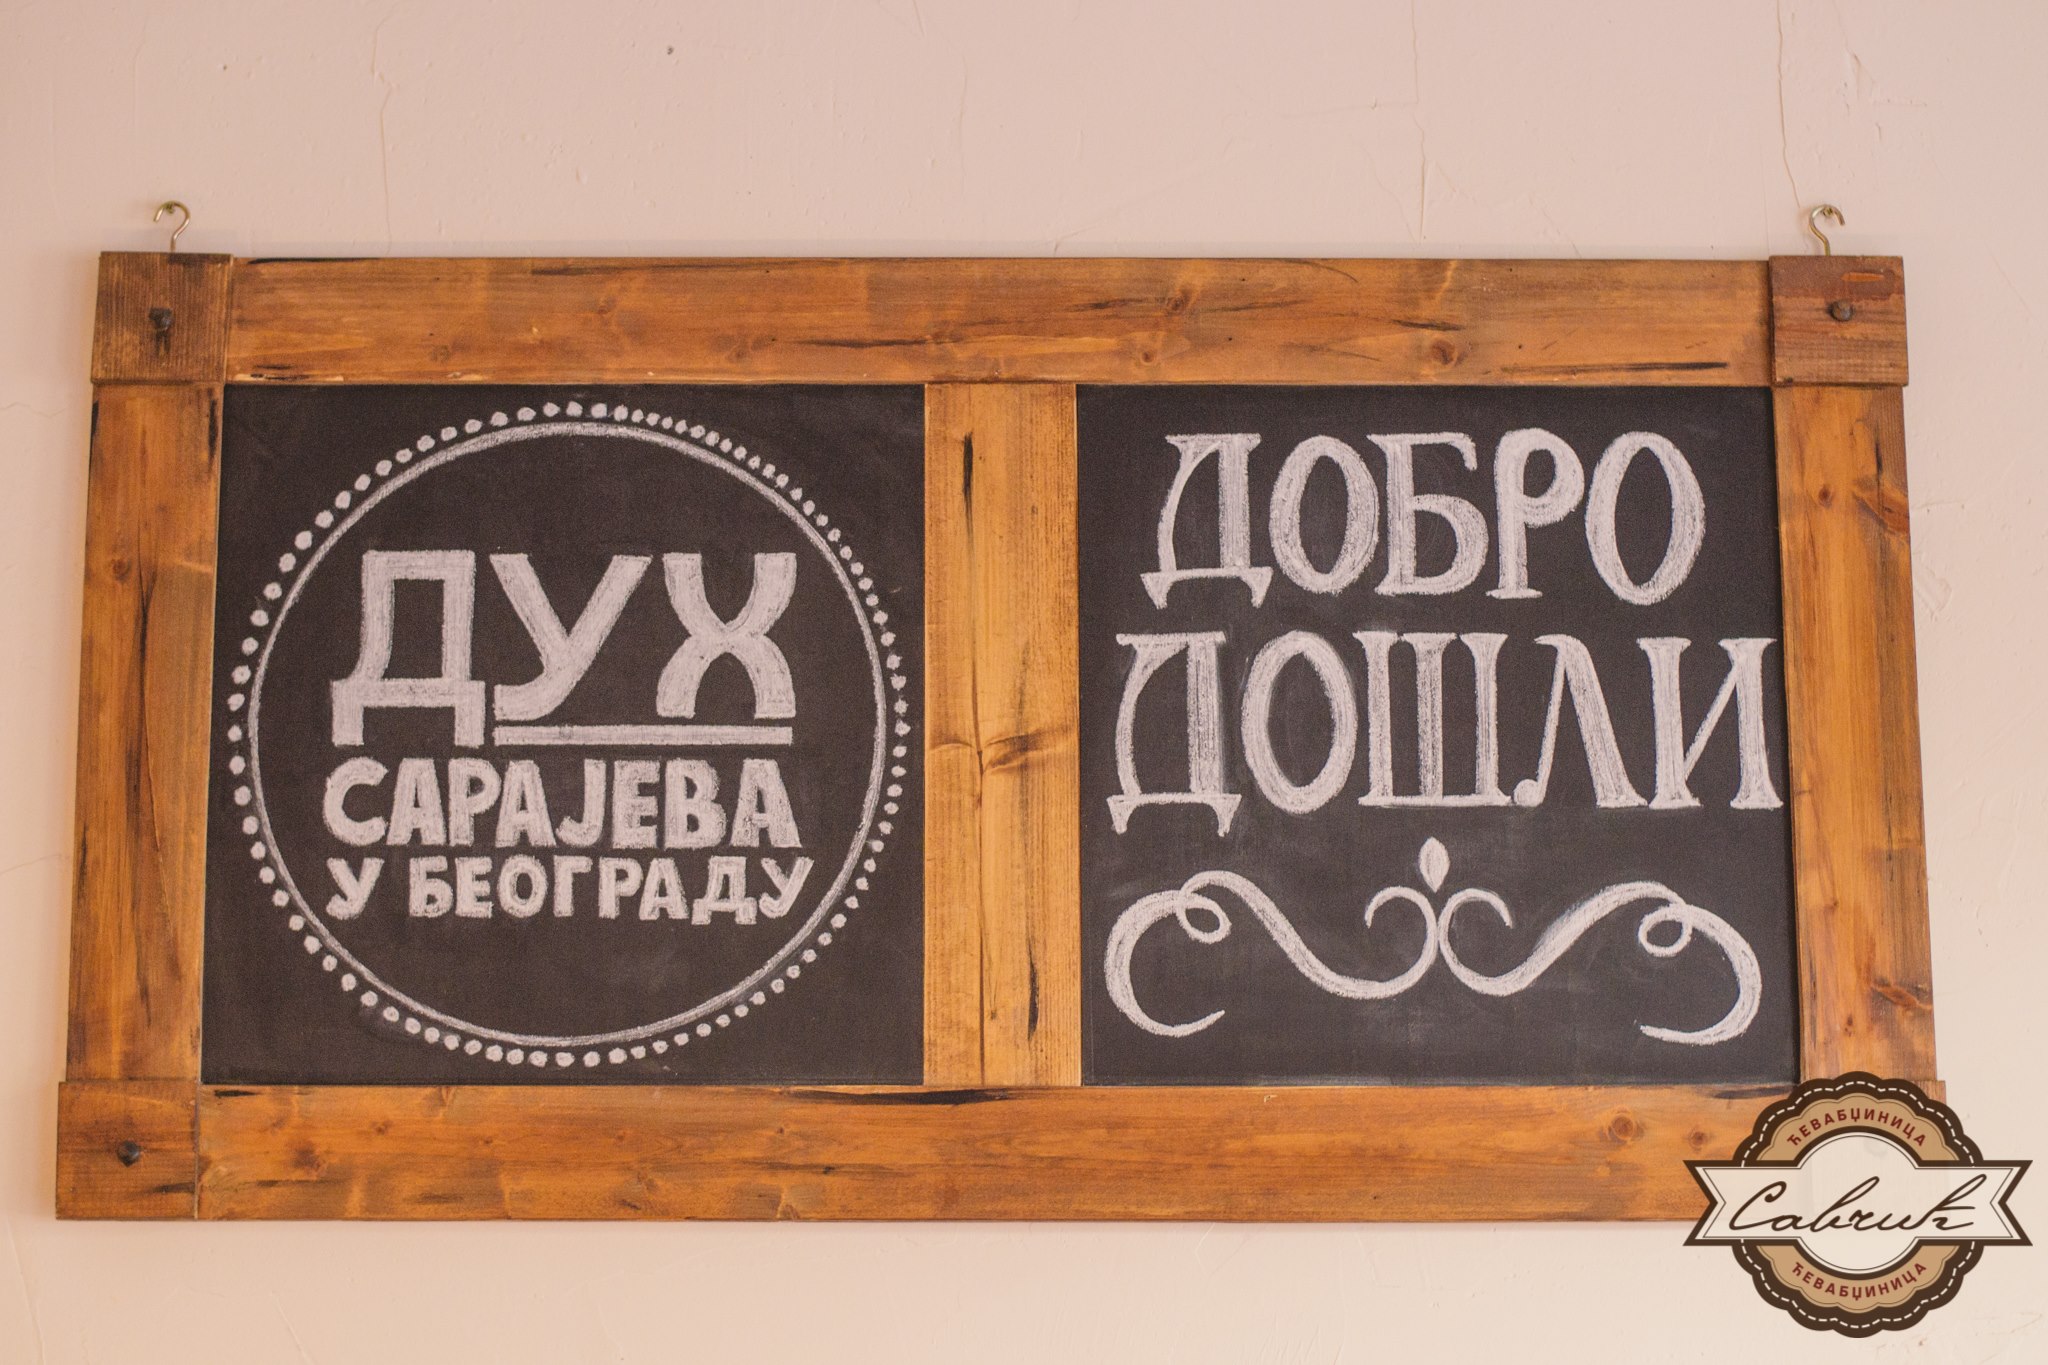 ДУХ
САРАЈЕВА
У БЕОГРАДУ
ДОБРО
ДОШЛИ
ЋЕВАБЏИНИЦА
Савчић
ЋЕВАБЏИНИЦА